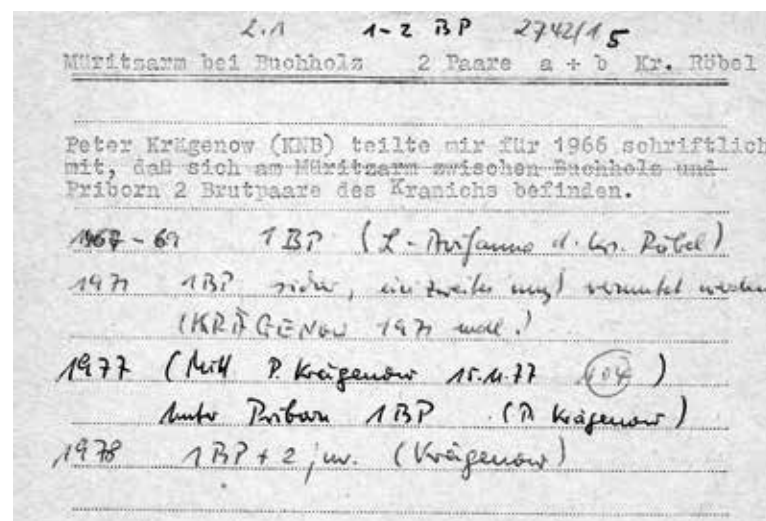 2.1 1-2 BP 2742/15
Müritzarm bei Buchholz 2 Paare a + b Kr. Röbel
Peter Krägenow (KNB) teilte mir für 1966 schriftlich
mit, daß sich am Müritzarm zwischen Buchholz und
Priborn 2 Brutpaare des Kranichs befinden.
1967-69 1 BP (L-Avifauna d. Krs. Röbel)
1971 1BP sicher, ein zweites muß vermutet werden
(KRÄGENOW 1971 mdl.)
1977 (Mitt P. Krägenow 15.11.77 104)
Priborn 1 BP (P. Krägenow)
1978 1 BP + 2 juv. (Krägenow)